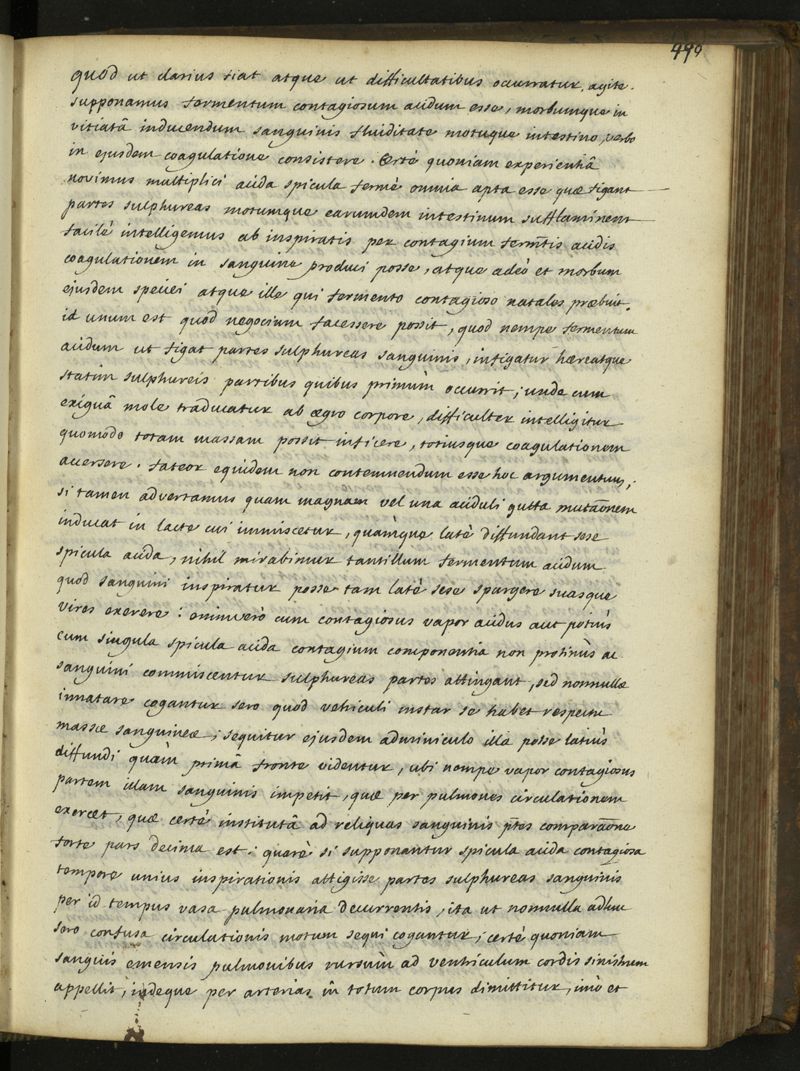 449
quod ut clarius fiat atque ut difficultatibus occurratur, agite.
supponamus fermentum contagiosum acidum esse, morbumque in
vitiatâ inducendum sanguinis fluiditate motuque intestino, verbo
in ejusdem coagulatione consistere. Certè quoniam experientiâ
novimus multiplici acida spicula fermè omnia apta esse quæ figant
partes sulphureas motumque earumdem intestinum sufflaminent
facilè intelligemus ab inspiratis per contagium ferm̃tis acidis
coagulationem in sanguine produci posse, atque adeò et morbum
ejusdem speciei atque ille qui fermento contagioso natales præbuit.
id unum est quod negocium facessere possit, quod nempe fermentum
acidum ut figat partes sulphureas sanguinis, infigatur hæreatque
statim sulphureis partibus quibus primùm occurrit; unde cum
exiguâ mole traducatur ab ægro corpore, difficulter intelligitur
quomodo totam massam possit inficere, totiusque coagulationem
accersere. fateor equidem non contemnendum esse hoc argumentum;
si tamen advertamus quam magnam vel una aciduli gutta mutãonem
inducat in lacte cui immiscetur, quàmque latè diffundant sese
spicula acida, nihil mirabimur tantillum fermentum acidum
quod sanguini inspiratur posse tam latè sese spargere suasque
vires exerere: enimverò cum contagiosus vapor acidus aut potiùs
cum singula spicula acida contagium componentia non protinùs ac
sanguini commiscentur sulphureas partes attingant, sed nonnulla
innatare cogantur sero quod vehiculi instar se habet respectu
massæ sanguineæ; sequitur ejusdem adminiculo illa posse latiùs
diffundi quàm primâ fronte videntur, ubi nempe vapor contagiosus
partem illam sanguinis impetit, quæ per pulmones circulationem
exercet, quæ certè institutâ ad reliquas sanguinis p̃tes comparãone
forte pars decima est: quarè si supponantur spicula acida contagiosa
tempore unius inspirationis attigisse partes sulphureas sanguinis
per id tempus vasa pulmonaria decurrentis, ita ut nonnulla adhuc
sero confusa circulationis motum sequi cogantur; certè quoniam
sanguis emensis pulmonibus rursùm ad ventriculum cordis sinistrum
appellit, indeque per arterias in totum corpus dimittitur, imò et